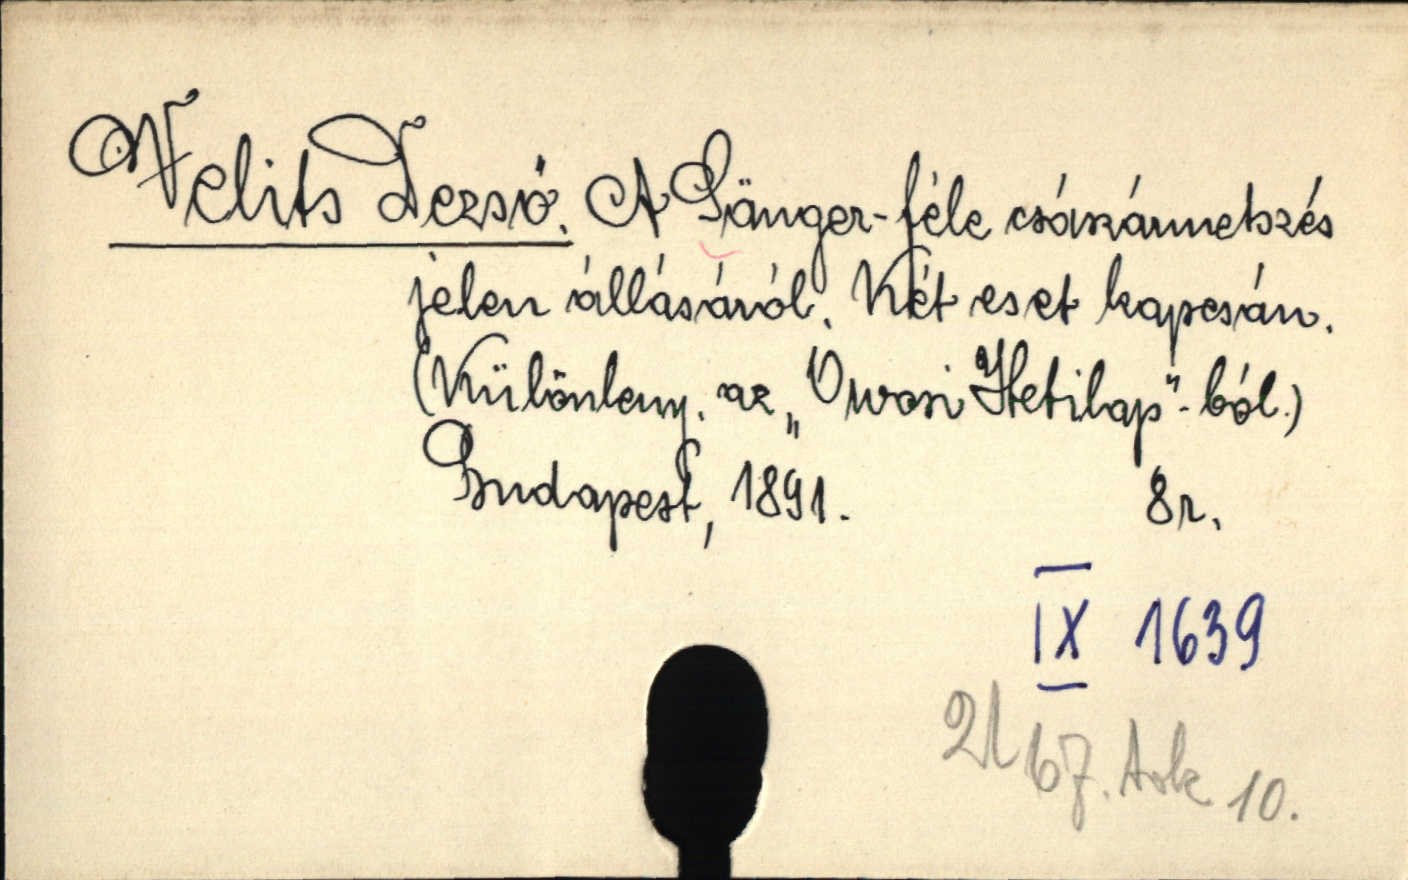 Velits Dezső. A Sänger-féle császármetszés
jelen állásáról. Két eset kapcsán.
(Különleny. az „Orvosi Hetilap"-ból.)
Budapest, 1891. 8r.
IX 1639
67. 10.